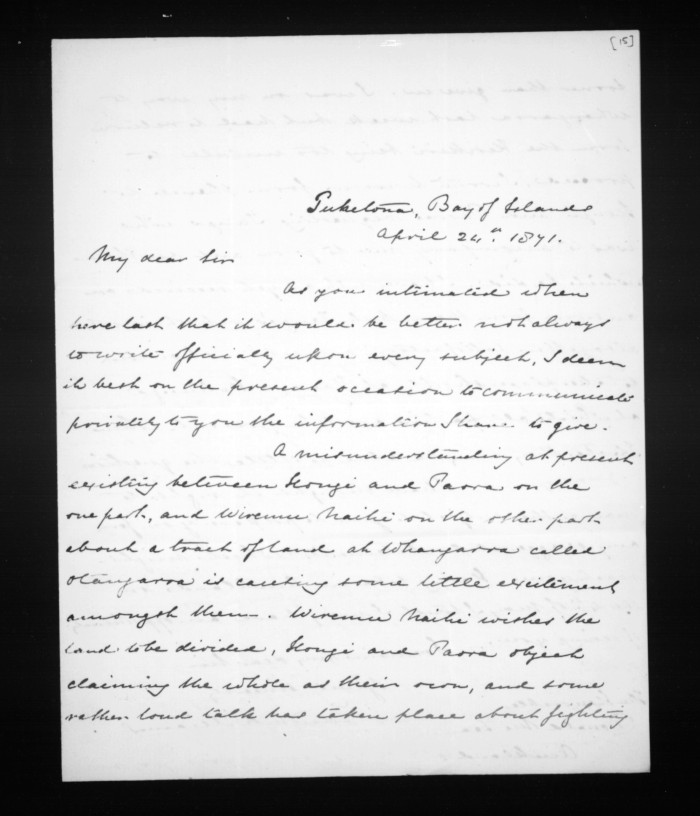 [15]
Puketona, Bay of Islands
April 24th. 1871.
My dear Sir
As you intimated when
here last that it would be better not always
to write officially upon every subject, I deem
it best on the present occasion to communicate
privately to you the information I have to give.
A misunderstanding at present
existing between Hongi and Paora on the
one part, and Wiremu Naihi on the other part
about a tract of land at Whangaroa called
Otangaroa is causing some little excitement
amongst them. Wiremu Naihi wishes the
land to be divided, Hongi and Paora object
claiming the whole as their own, and some
rather loud talk has taken place about fighting